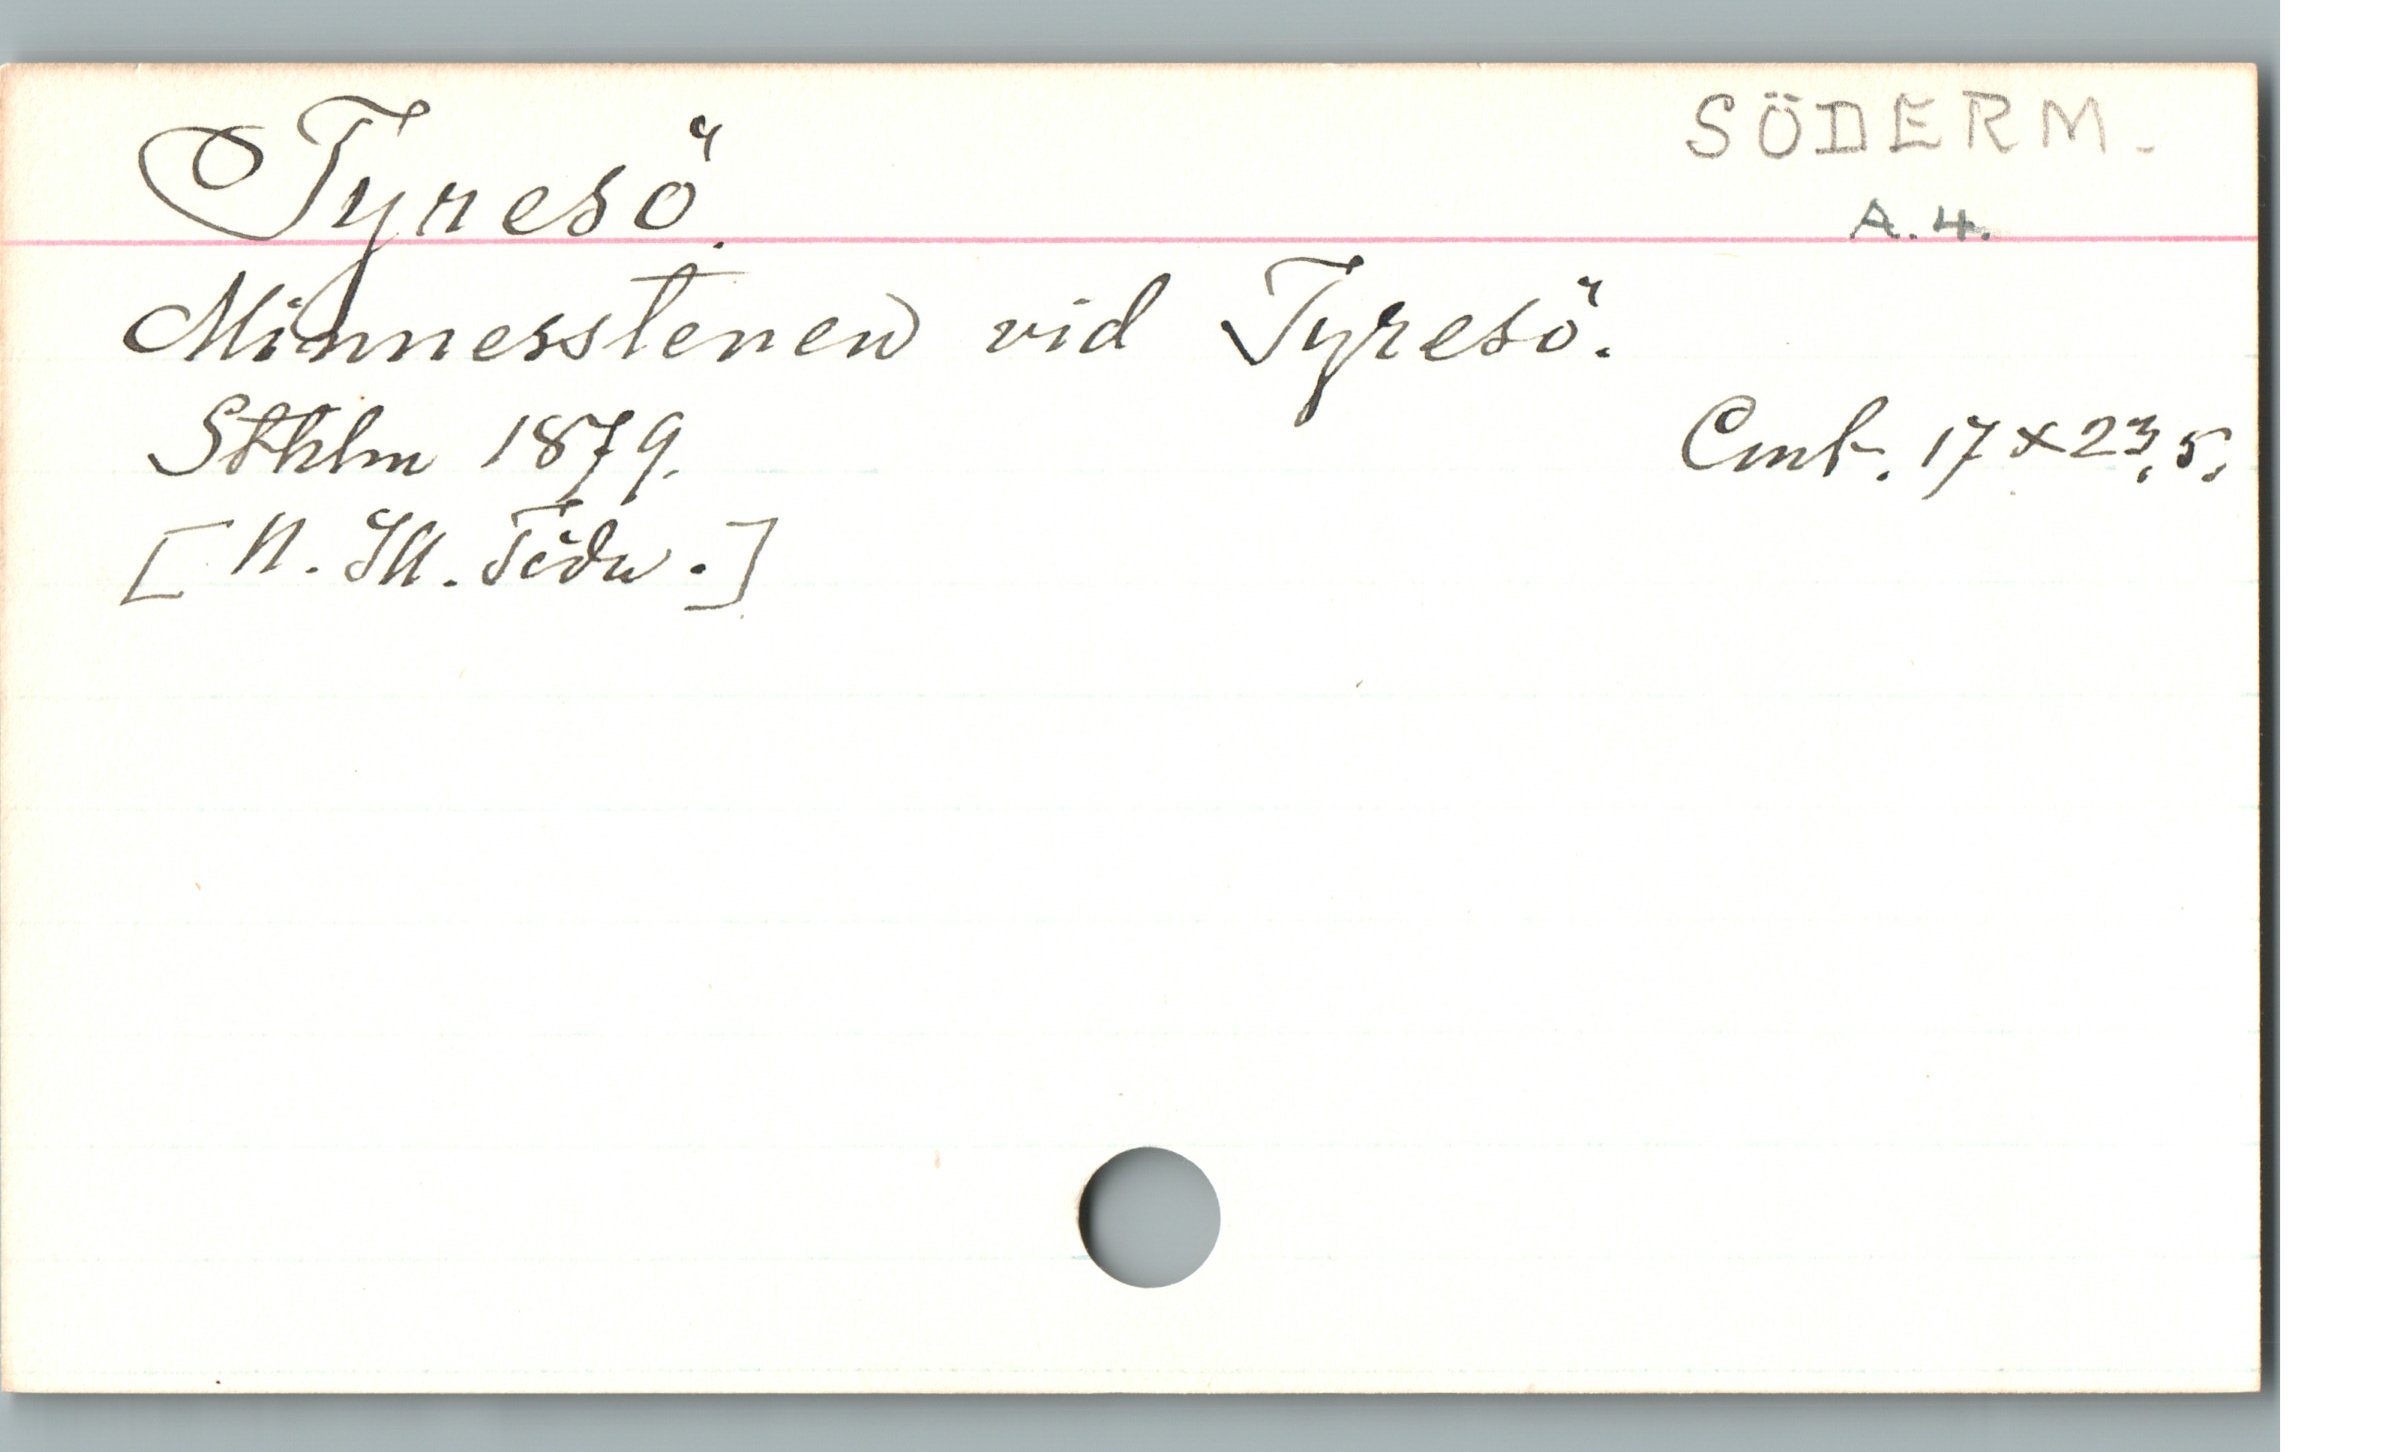 Tyresö.
SÖDERM.
A. 4.
Minnesstenen vid Tyresö.
Sthlm 1879.
Cmt. 17 x 23,5.
[N. Ill. Tidn.]